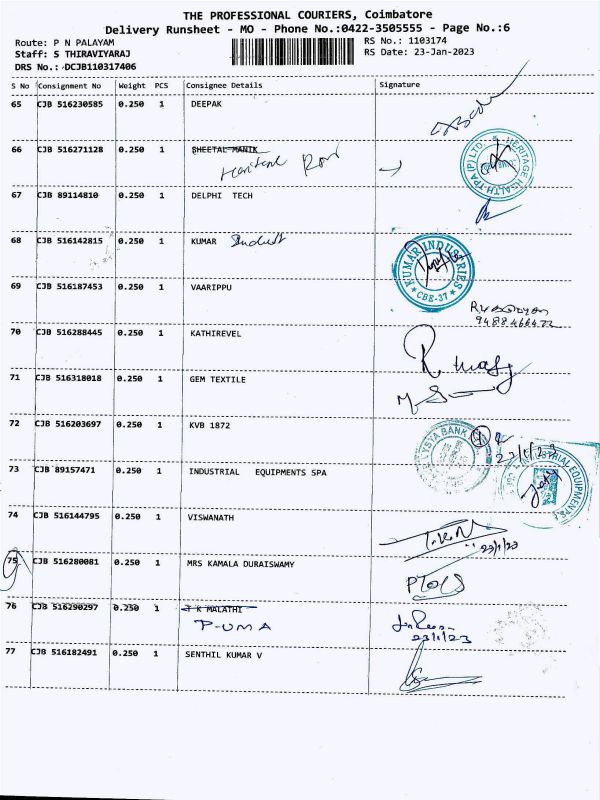 THE PROFESSIONAL COURIERS, Coimbatore
Delivery Runsheet - MO - Phone No.:0422-3505555 - Page No.:6
Route: P N PALAYAM
RS No.: 1103174
Staff: S THIRAVIYARAJ
RS Date: 23-Jan-2023
DRS No.: DCJB110317406
S No Consignment No Weight PCS Consignee Details Signature
65 CJB 516230585 0.250 1 DEEPAK
66 CJB 516271128 0.250 1 SHEETAL MANIK
HERITAGE HEALTH-TPA (P) LTD.
67 CJB 89114810 0.250 1 DELPHI TECH
68 CJB 516142815 0.250 1 KUMAR
KUMAR INDUSTRIES
* CBE-37 *
69 CJB 516187453 0.250 1 VAARIPPU
70 CJB 516288445 0.250 1 KATHIREVEL
71 CJB 516318018 0.250 1 GEM TEXTILE
72 CJB 516203697 0.250 1 KVB 1872
YSTA BANK
73 CJB 89157471 0.250 1 INDUSTRIAL EQUIPMENTS SPA
INDUSTRIAL EQUIPMENTS
74 CJB 516144795 0.250 1 VISWANATH
75 CJB 516280081 0.250 1 MRS KAMALA DURAISWAMY
76 CJB 516290297 0.250 1 T K MALATHI
P-UMA
23/1/23
77 CJB 516182491 0.250 1 SENTHIL KUMAR V